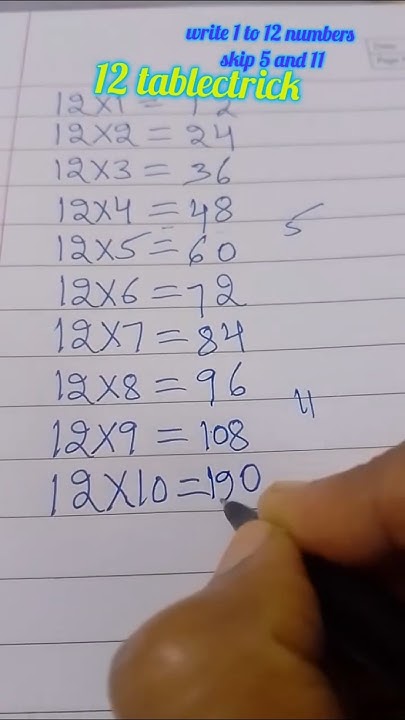 write 1 to 12 numbers
skip 5 and 11
12 tablectrick
12×1 = 12
12×2 = 24
12×3 = 36
12×4 = 48
5
12×5 = 60
12×6 = 72
12×7 = 84
12×8 = 96
11
12×9 = 108
12×10 = 190